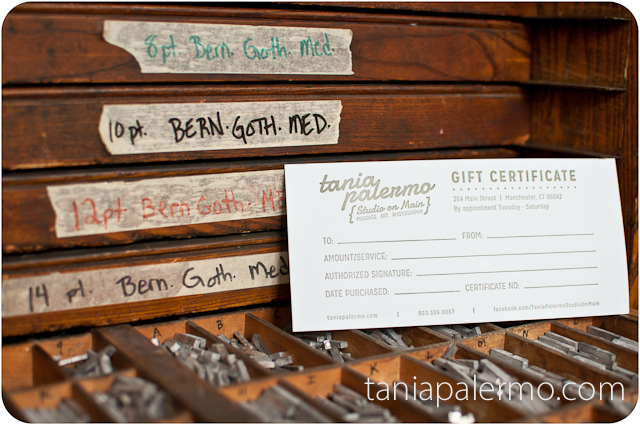 8pt. Bern. Goth. Med.
10pt. BERN. GOTH. MED.
12pt. Bern Goth. M
14 pt. Bern. Goth. Med
tania palermo
{Studio on Main}
MASSAGE. ART. PHOTOGRAPHY
GIFT CERTIFICATE
204 Main Street | Manchester, CT 06042
By appointment Tuesday - Saturday
TO: FROM:
AMOUNT/SERVICE:
AUTHORIZED SIGNATURE:
DATE PURCHASED: CERTIFICATE NO:
taniapalermo.com | 860.306.0067 | facebook.com/TaniaPalermoStudioOnMain
taniapalermo.com